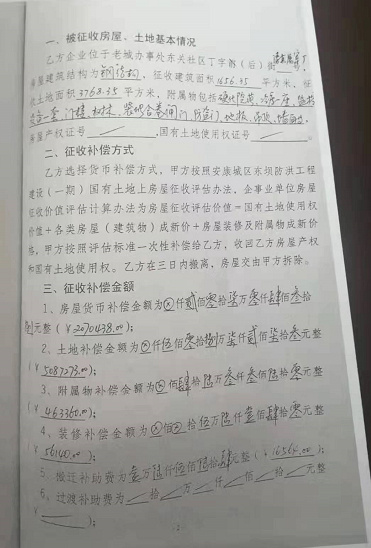 一、被征收房屋、土地基本情况
乙方企业位于老城办事处东关社区丁字街(后)街
房屋建筑结构为钢结构,征收建筑面积1656.35平方米,征
收土地面积3768.35平方米,附属物包括
门楼、树木、卷闸门、防盗门、地板、吊顶、
房屋产权证号 ,国有土地使用权证号 。
二、征收补偿方式
乙方选择货币补偿方式,甲方按照安康城区东坝防洪工程
建设(一期)国有土地上房屋征收评估办法、企事业单位房屋
征收价值评估计算办法为房屋征收评估价值=国有土地使用权
价值+各类房屋(建筑物)成新价+房屋装修及附属物成新价
格,甲方按照评估标准一次性补偿给乙方,收回乙方房屋产权
和国有土地使用权。乙方在三日内搬离,房屋交由甲方拆除。
三、征收补偿金额
1、房屋货币补偿金额为⊗仟贰佰零拾柒万零仟肆佰叁拾
捌元整(¥2070438.00);
2、土地补偿金额为⊗仟伍佰零拾捌万柒仟贰佰柒拾叁元整
(¥5087273.00);
3、附属物补偿金额为⊗佰肆拾陆万叁仟叁佰陆拾零元整
(¥463360.00);
4、装修补偿金额为⊗佰⊗拾伍万陆仟壹佰肆拾零元整
(¥56140.00);
5、搬迁补助费为壹万陆仟伍佰陆拾肆元整(¥16564.00);
6、过渡补助费为 拾 万 仟 佰 拾 元整
(¥ );
-2-